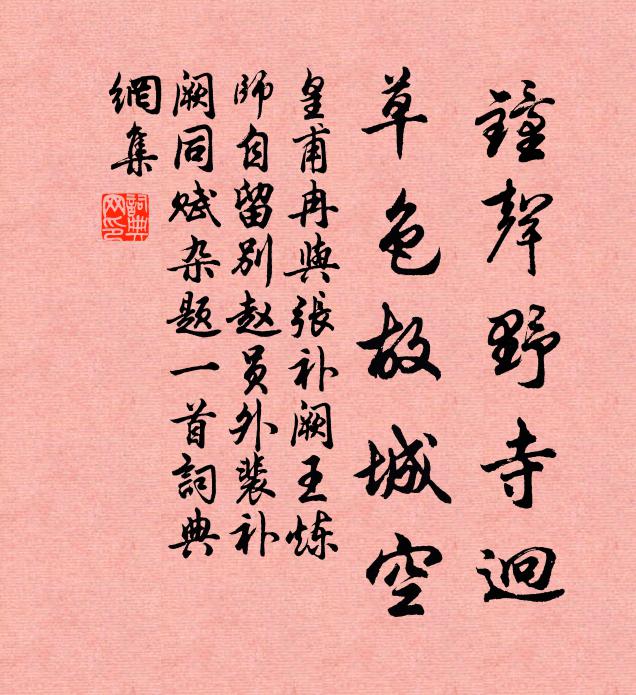 鐘聲野寺迥
草色故城空
皇甫冉與張补闕王炼
師自留别赵員外裴补
闕同赋杂题一首詞典
網集
詞典
网印